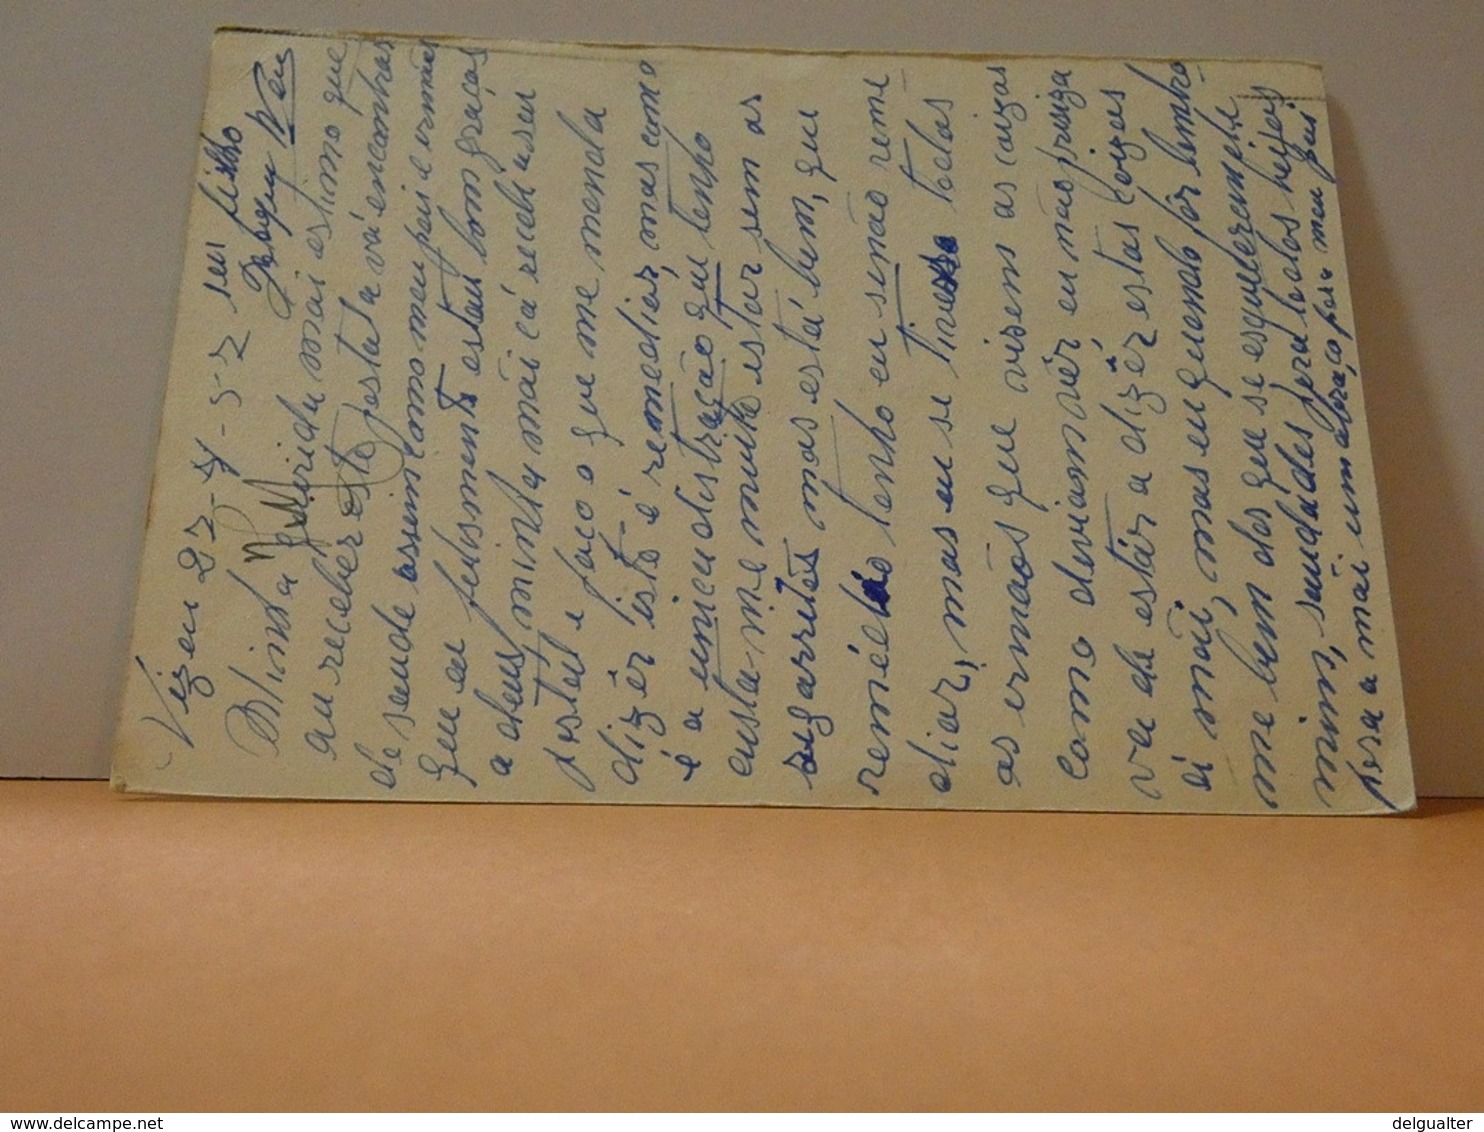 Vizeu 27-4-52 seu filho
Joaquim
Minha Querida mãi estimo que
au receber esta postal a vá encontrar
de saude assim como meu pai e irmãos
que eu felismente estou bom graças
a deus, minha mãi cá recebi u seu
postal e faço o que me manda
dizêr isto é remediar, mas como
é a unica distração que tenho
custa-me muito estar sem os
sigarritos mas está bem, que
remédio tenho eu senão reme
diar, mas eu se tivesse todos
os irmãos que visem as coizas
como deviam vêr eu não presiza
va de estár a dizêr estas coizas
ái mãi, mas eu quando fôr lembro-
me bem dos que se esqueceram de
mim, saudades para todos beijos
para a mãi um abraço para meu pai
delgualter